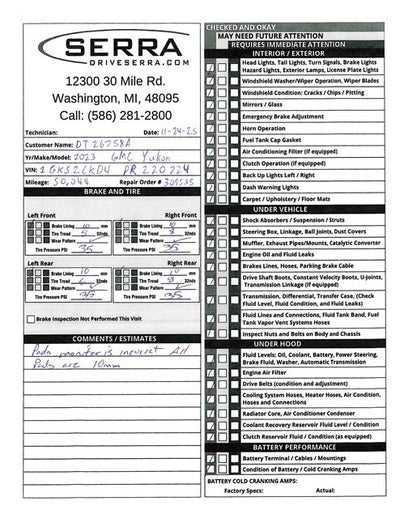 SERRA
DRIVESERRA.COM
12300 30 Mile Rd.
Washington, MI, 48095
Call: (586) 281-2800
Technician: Date: 11-24-25
Customer Name: DT26258A
Yr/Make/Model: 2023 GMC Yukon
VIN: 1GKS2CKD4 PR220224
Mileage: 50,044 Repair Order #
BRAKE AND TIRE
Left Front Right Front
Brake Lining 10 mm Brake Lining 10 mm
Tire Tread 8 32nds Tire Tread 8 32nds
Wear Pattern Wear Pattern
Tire Pressure PSI 35 Tire Pressure PSI 35
Left Rear Right Rear
Brake Lining 10 mm Brake Lining 10 mm
Tire Tread 32nds Tire Tread 32nds
Wear Pattern Wear Pattern
Tire Pressure PSI 35 Tire Pressure PSI 35
Brake Inspection Not Performed This Visit
COMMENTS / ESTIMATES
Pads moniter is inverect All
Pads are 10mm
CHECKED AND OKAY
MAY NEED FUTURE ATTENTION
REQUIRES IMMEDIATE ATTENTION
INTERIOR / EXTERIOR
Head Lights, Tail Lights, Turn Signals, Brake Lights
Hazard Lights, Exterior Lamps, License Plate Lights
Windshield Washer/Wiper Operation, Wiper Blades
Windshield Condition: Cracks / Chips / Pitting
Mirrors / Glass
Emergency Brake Adjustment
Horn Operation
Fuel Tank Cap Gasket
Air Conditioning Filter (if equipped)
Clutch Operation (if equipped)
Back Up Lights Left / Right
Dash Warning Lights
Carpet / Upholstery / Floor Mats
UNDER VEHICLE
Shock Absorbers / Suspension / Struts
Steering Box, Linkage, Ball Joints, Dust Covers
Muffler, Exhaust Pipes/Mounts, Catalytic Converter
Engine Oil and Fluid Leaks
Brakes Lines, Hoses, Parking Brake Cable
Drive Shaft Boots, Constant Velocity Boots, U-Joints,
Transmission Linkage (if equipped)
Transmission, Differential, Transfer Case, (Check
Fluid Level, Fluid Condition, and Fluid Leaks)
Fluid Lines and Connections, Fluid Tank Band, Fuel
Tank Vapor Vent Systems Hoses
Inspect Nuts and Bolts on Body and Chassis
UNDER HOOD
Fluid Levels: Oil, Coolant, Battery, Power Steering,
Brake Fluid, Washer, Automatic Transmission
Engine Air Filter
Drive Belts (condition and adjustment)
Cooling System Hoses, Heater Hoses, Air Condition,
Hoses and Connections
Radiator Core, Air Conditioner Condenser
Coolant Recovery Reservoir Fluid Level / Condition
Clutch Reservoir Fluid / Condition (as equipped)
BATTERY PERFORMANCE
Battery Terminal / Cables / Mountings
Condition of Battery / Cold Cranking Amps
BATTERY COLD CRANKING AMPS:
Factory Specs: Actual: